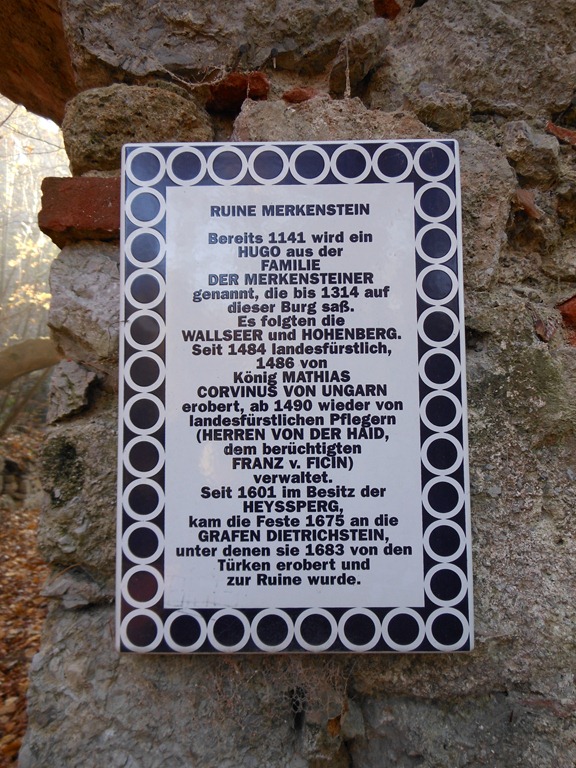 RUINE MERKENSTEIN
Bereits 1141 wird ein
HUGO aus der
FAMILIE
DER MERKENSTEINER
genannt, die bis 1314 auf
dieser Burg saß.
Es folgten die
WALLSEER und HOHENBERG.
Seit 1484 landesfürstlich,
1486 von
König MATHIAS
CORVINUS VON UNGARN
erobert, ab 1490 wieder von
landesfürstlichen Pflegern
(HERREN VON DER HAID,
dem berüchtigten
FRANZ v. FICIN)
verwaltet.
Seit 1601 im Besitz der
HEYSSPERG,
kam die Feste 1675 an die
GRAFEN DIETRICHSTEIN,
unter denen sie 1683 von den
Türken erobert und
zur Ruine wurde.